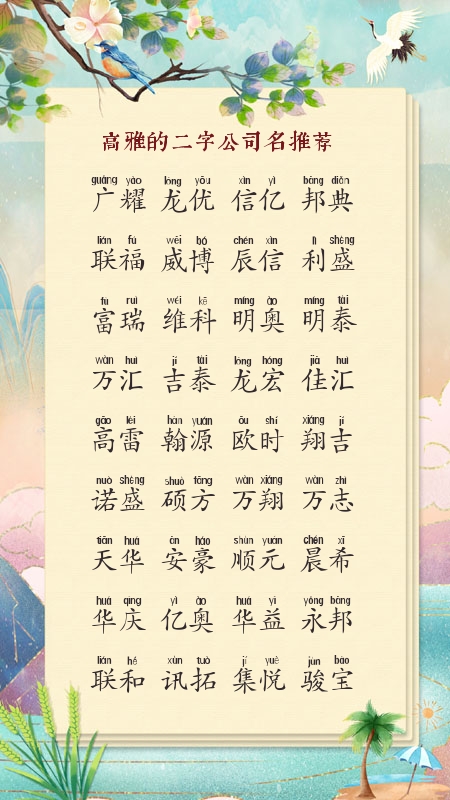 高雅的二字公司名推荐
guǎng yào lóng yōu xìn yì bāng diǎn
广耀 龙优 信亿 邦典
lián fú wēi bó chén xìn lì shèng
联福 威博 辰信 利盛
fù ruì wéi kē míng ào míng tài
富瑞 维科 明奥 明泰
wàn huì jí tài lóng hóng jiā huì
万汇 吉泰 龙宏 佳汇
gāo léi hàn yuán ōu shí xiáng jí
高雷 翰源 欧时 翔吉
nuò shèng shuò fāng wàn xiáng wàn zhì
诺盛 硕方 万翔 万志
tiān huá ān háo shùn yuán chén xī
天华 安豪 顺元 晨希
huá qìng yì ào huá yì yǒng bāng
华庆 亿奥 华益 永邦
lián hé xùn tuò jí yuè jùn bǎo
联和 讯拓 集悦 骏宝